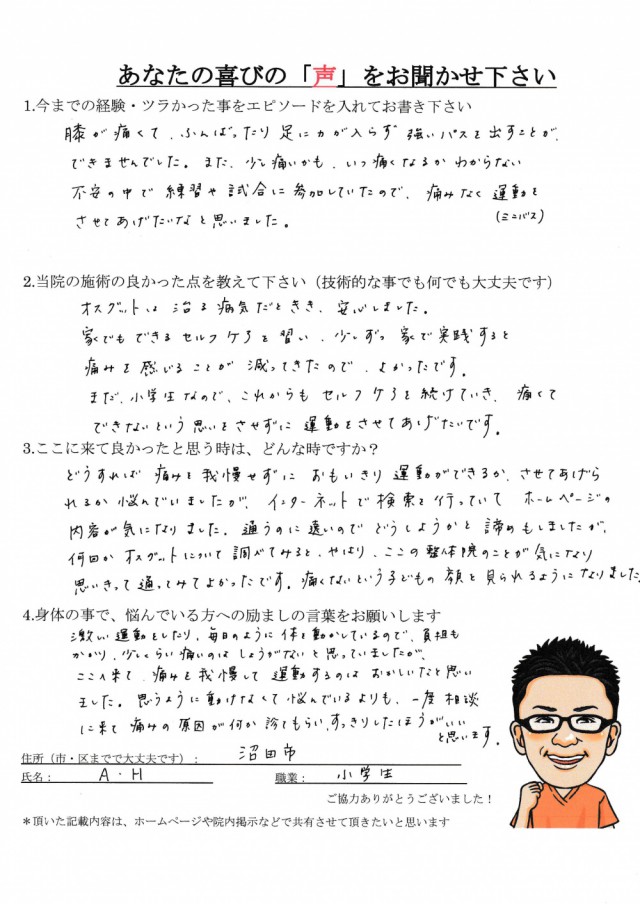 あなたの喜びの「声」をお聞かせ下さい
1.今までの経験・ツラかった事をエピソードを入れてお書き下さい
膝が痛くて、ふんばったり足に力が入らず強いパスを出すことが、
できませんでした。また、少し痛いかも、いつ痛くなるかわからない
不安の中で練習や試合に参加していたので、痛みなく運動を
(ミニバス)
させてあげたいなと思いました。
2.当院の施術の良かった点を教えて下さい（技術的な事でも何でも大丈夫です）
オスグットは治る病気だときき、安心しました。
家でもできるセルフケアを習い、少しずつ家で実践すると
痛みを感じることが減ってきたので、よかったです。
まだ、小学生なので、これからもセルフケアを続けていき、痛くて
できないという思いをさせずに運動をさせてあげたいです。
3.ここに来て良かったと思う時は、どんな時ですか？
どうすれば痛みを我慢せずにおもいきり運動ができるか、させてあげら
れるか悩んでいましたが、インターネットで検索を行っていてホームページの
内容が気になりました。通うのに遠いのでどうしようかと諦めもしましたが、
何回かオスグットについて調べてみると、やはり、ここの整体院のことが気になり
思いきって通ってみてよかったです。痛くないという子どもの顔を見られるようになりました
4.身体の事で、悩んでいる方への励ましの言葉をお願いします
激しい運動をしたり、毎日のように体を動かしているので、負担も
かかり、少しくらい痛いのはしょうがないと思っていましたが、
ここへ来て、痛みを我慢して運動するのはおかしいなと思い
ました。思うように動けなくて悩んでいるよりも、一度相談
に来て痛みの原因が何か診てもらい、すっきりしたほうがいい
と思います。
住所（市・区までで大丈夫です）： 沼田市
氏名： A・H 職業： 小学生
ご協力ありがとうございました！
＊頂いた記載内容は、ホームページや院内掲示などで共有させて頂きたいと思います